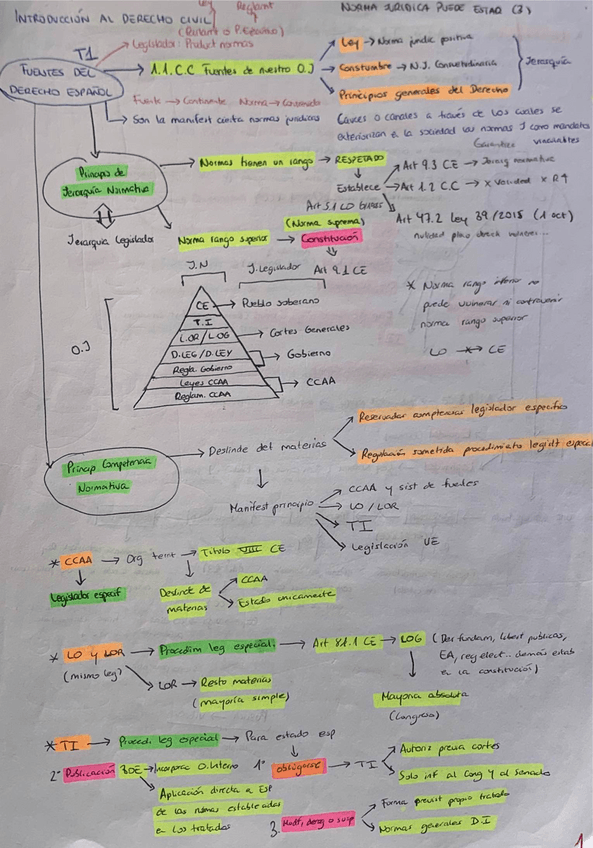 INTRODUCCIÓN AL DERECHO CIVIL
Ley
Reglamt
NORMA JURIDICA PUEDE ESTAR (3)
T1
Legislador: Product normas
FUENTES DEL
DERECHO ESPAÑOL
1.1. C.C Fuentes de nuestro O.J
Ley → Norma jundic positiva
Constumbre → N.J. Consuetudinaria
Principios generales del Derecho
Jerarquía
Fuente → Continente Norma → Contenido
Son la manifest cinta normas juridicas
Cauces o canales a través de los cuales se
exteriorizan a la sociedad las normas J como mandatos
vinculantes
Garantías
Principio de
Jerarquía Normativa
Normas tienen un rango → RESPETADO
Establece
Art 9.3 CE → Jerarq normativa
Art 1.2 C.C → x Validad x R↑
Art 5.1 LO
Art 47.2 Ley 39/2015 (1 oct)
nulidad pleno derech vulneren...
Jerarquía Legislador
Norma rango superior
(Norma suprema)
Constitución
Art 9.1 CE
J.N
J. Legislador
* Norma rango inferior no
puede vulnerar ni contravenir
norma rango superior
LO → CE
O.J
CE → Pueblo soberano
T.I
L.OR/L.OG → Cortes Generales
D.LEG/D.LEY
Regla. Gobierno
Gobierno
Leyes CCAA
Reglam. CCAA
CCAA
Princip Competencia
Normativa
Deslinde det materias
Reservadar competencias legislador especifico
Regulación sometida procedimiato legislt especi
Manifest principio
CCAA y sist de fuentes
LO / LOR
TI
Legislación UE
* CCAA → Org territ → Titulo VIII CE
Legislador especif
Deslinde de
materias
CCAA
Estado unicamente
* LO y LOR → Procedim leg especial. → Art 81.1 CE → LOG (Der fundam, libert publicas,
EA, reg elect.. demás estab
en la constitución)
(mismo leg)
LOR → Resto materias
(mayoría simple)
Mayoria absoluta
(Congreso)
* TI → Procedi leg especial → Para estado esp
2º Publicación BOE → Incorporac O. Interno
1º obligarse → TI
Autoriz previa cortes
Solo inf al Cong y al senado
Aplicación directa a ESP
de las normas establecidas
en los tratados
3. Modf, derog o susp
Forma previst propio tratado
Normas generales D.I
1